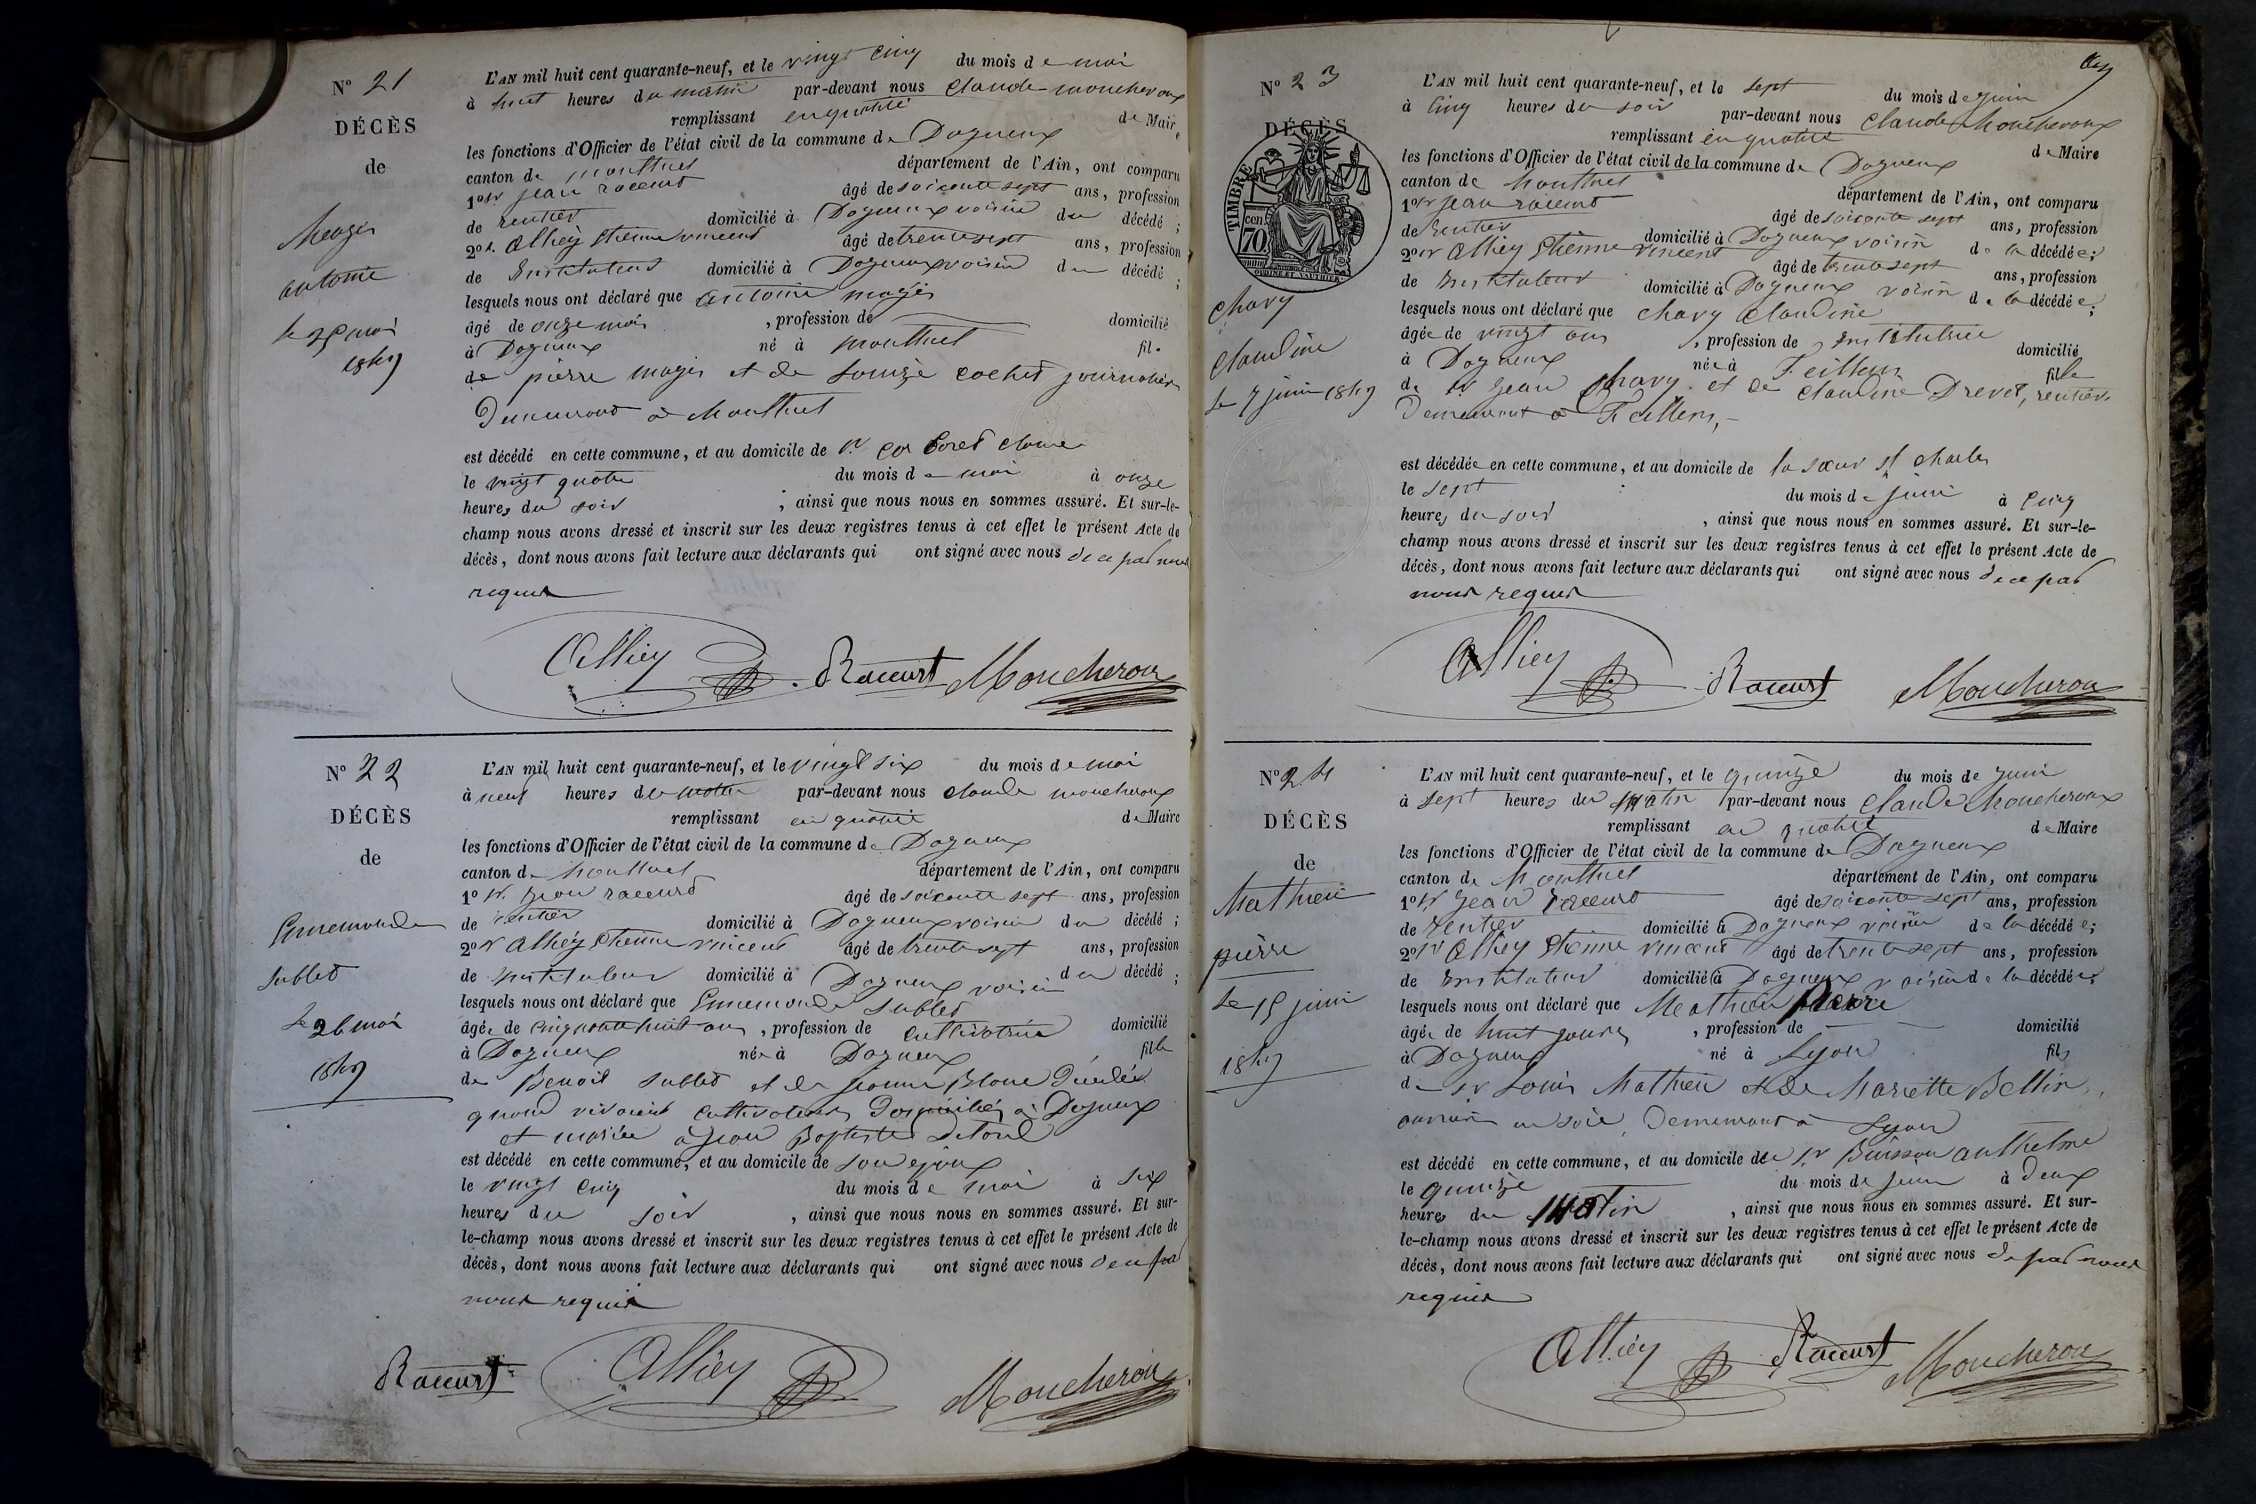 Nº 21
DÉCÈS
de
Mogés
antoine
le 25 mai
1849
L'AN mil huit cent quarante-neuf, et le vingt cinq du mois de mai
à huit heures du matin par-devant nous Claude moucheroux
remplissant en qualité de Maire
les fonctions d'Officier de l'état civil de la commune de Dagneux
canton de montluel département de l'Ain, ont comparu
1º sr jean racurt âgé de soixante sept ans, profession
de rentier domicilié à Dagneux voisin du décédé ;
2º s. Alliéy étienne vincent âgé de trente sept ans, profession
de instituteur domicilié à Dagneux voisin du décédé ;
lesquels nous ont déclaré que antoine mogés
âgé de onze mois , profession de domicilié
à Dagneux né à montluel fils
de pierre mogés et de Louize cochet journaliers
Demeurant à Montluel
est décédé en cette commune, et au domicile de claire
le vingt quatre du mois de mai à onze
heures du soir ; ainsi que nous nous en sommes assuré. Et sur-le-
champ nous avons dressé et inscrit sur les deux registres tenus à cet effet le présent Acte de
décès, dont nous avons fait lecture aux déclarants qui ont signé avec nous de ce par nous
requis
Alliey Racurt Moucheroux
Nº 22
DÉCÈS
de
Ennemonde
Sublet
le 26 mai
1849
L'AN mil huit cent quarante-neuf, et le vingt six du mois de mai
à neuf heures du matin par-devant nous claude moucheroux
remplissant en qualité de Maire
les fonctions d'Officier de l'état civil de la commune de Dagneux
canton de Montluel département de l'Ain, ont comparu
1º sr jean racurt âgé de soixante sept ans, profession
de rentier domicilié à Dagneux voisin du décédé ;
2º sr Alliéy étienne vincent âgé de trente sept ans, profession
de instituteur domicilié à Dagneux voisin du décédé ;
lesquels nous ont déclaré que Ennemonde Sublet
âgée de cinquante huit ans , profession de cultivatrice domicilié
à Dagneux née à Dagneux fille
de Benoit Sublet et de jeanne Blanc
quand vivaient cultivateurs Domiciliés à Dagneux
et mariée à jean Baptiste
est décédé en cette commune, et au domicile de son époux
le vingt cinq du mois de mai à six
heures du soir , ainsi que nous nous en sommes assuré. Et sur-
le-champ nous avons dressé et inscrit sur les deux registres tenus à cet effet le présent Acte de
décès, dont nous avons fait lecture aux déclarants qui ont signé avec nous de ce par
nous requis
Racurt Alliey Moucheroux
Nº 23
DÉCÈS
TIMBRE
70 cen
Chavy
Claudine
le 7 juin 1849
L'AN mil huit cent quarante-neuf, et le sept du mois de juin
à cinq heures du soir par-devant nous Claude Moucheroux
remplissant en qualité de Maire
les fonctions d'Officier de l'état civil de la commune de Dagneux
canton de Montluel département de l'Ain, ont comparu
1º sr jean racurt âgé de soixante sept ans, profession
de rentier domicilié à Dagneux voisin de la décédée ;
2º sr Alliey étienne vincent âgé de trente sept ans, profession
de instituteur domicilié à Dagneux voisin de la décédée ;
lesquels nous ont déclaré que chavy claudine
âgée de vingt ans , profession de institutrice domicilié
à Dagneux née à Feillens fille
de sr jean chavy et de claudine Drevet, rentiers
Demeurant à Feillens,-
est décédée en cette commune, et au domicile de la sœur st charles
le sept du mois de juin à cinq
heures du soir , ainsi que nous nous en sommes assuré. Et sur-le-
champ nous avons dressé et inscrit sur les deux registres tenus à cet effet le présent Acte de
décès, dont nous avons fait lecture aux déclarants qui ont signé avec nous de ce par
nous requis
Alliey Racurt Moucheroux
Nº 24
DÉCÈS
de
Mathieu
pierre
le 15 juin
1849
L'AN mil huit cent quarante-neuf, et le quinze du mois de juin
à sept heures du matin par-devant nous Claude Moucheroux
remplissant en qualité de Maire
les fonctions d'Officier de l'état civil de la commune de Dagneux
canton de Montluel département de l'Ain, ont comparu
1º sr jean racurt âgé de soixante sept ans, profession
de rentier domicilié à Dagneux voisin de la décédée ;
2º sr Alliey étienne vincent âgé de trente sept ans, profession
de instituteur domicilié à Dagneux voisin de la décédée
lesquels nous ont déclaré que Mathieu pierre
âgée de huit jours , profession de domicilié
à Dagneux né à Lyon fils
de sr Louis Mathieu et de Mariette Bellin,
ouvriers en soie, Demeurant à Lyon
est décédé en cette commune, et au domicile de sr Buisson anthelme
le quinze du mois de juin à deux
heures du matin , ainsi que nous nous en sommes assuré. Et sur-
le-champ nous avons dressé et inscrit sur les deux registres tenus à cet effet le présent Acte de
décès, dont nous avons fait lecture aux déclarants qui ont signé avec nous de par nous
requis
Alliey Racurt Moucheroux